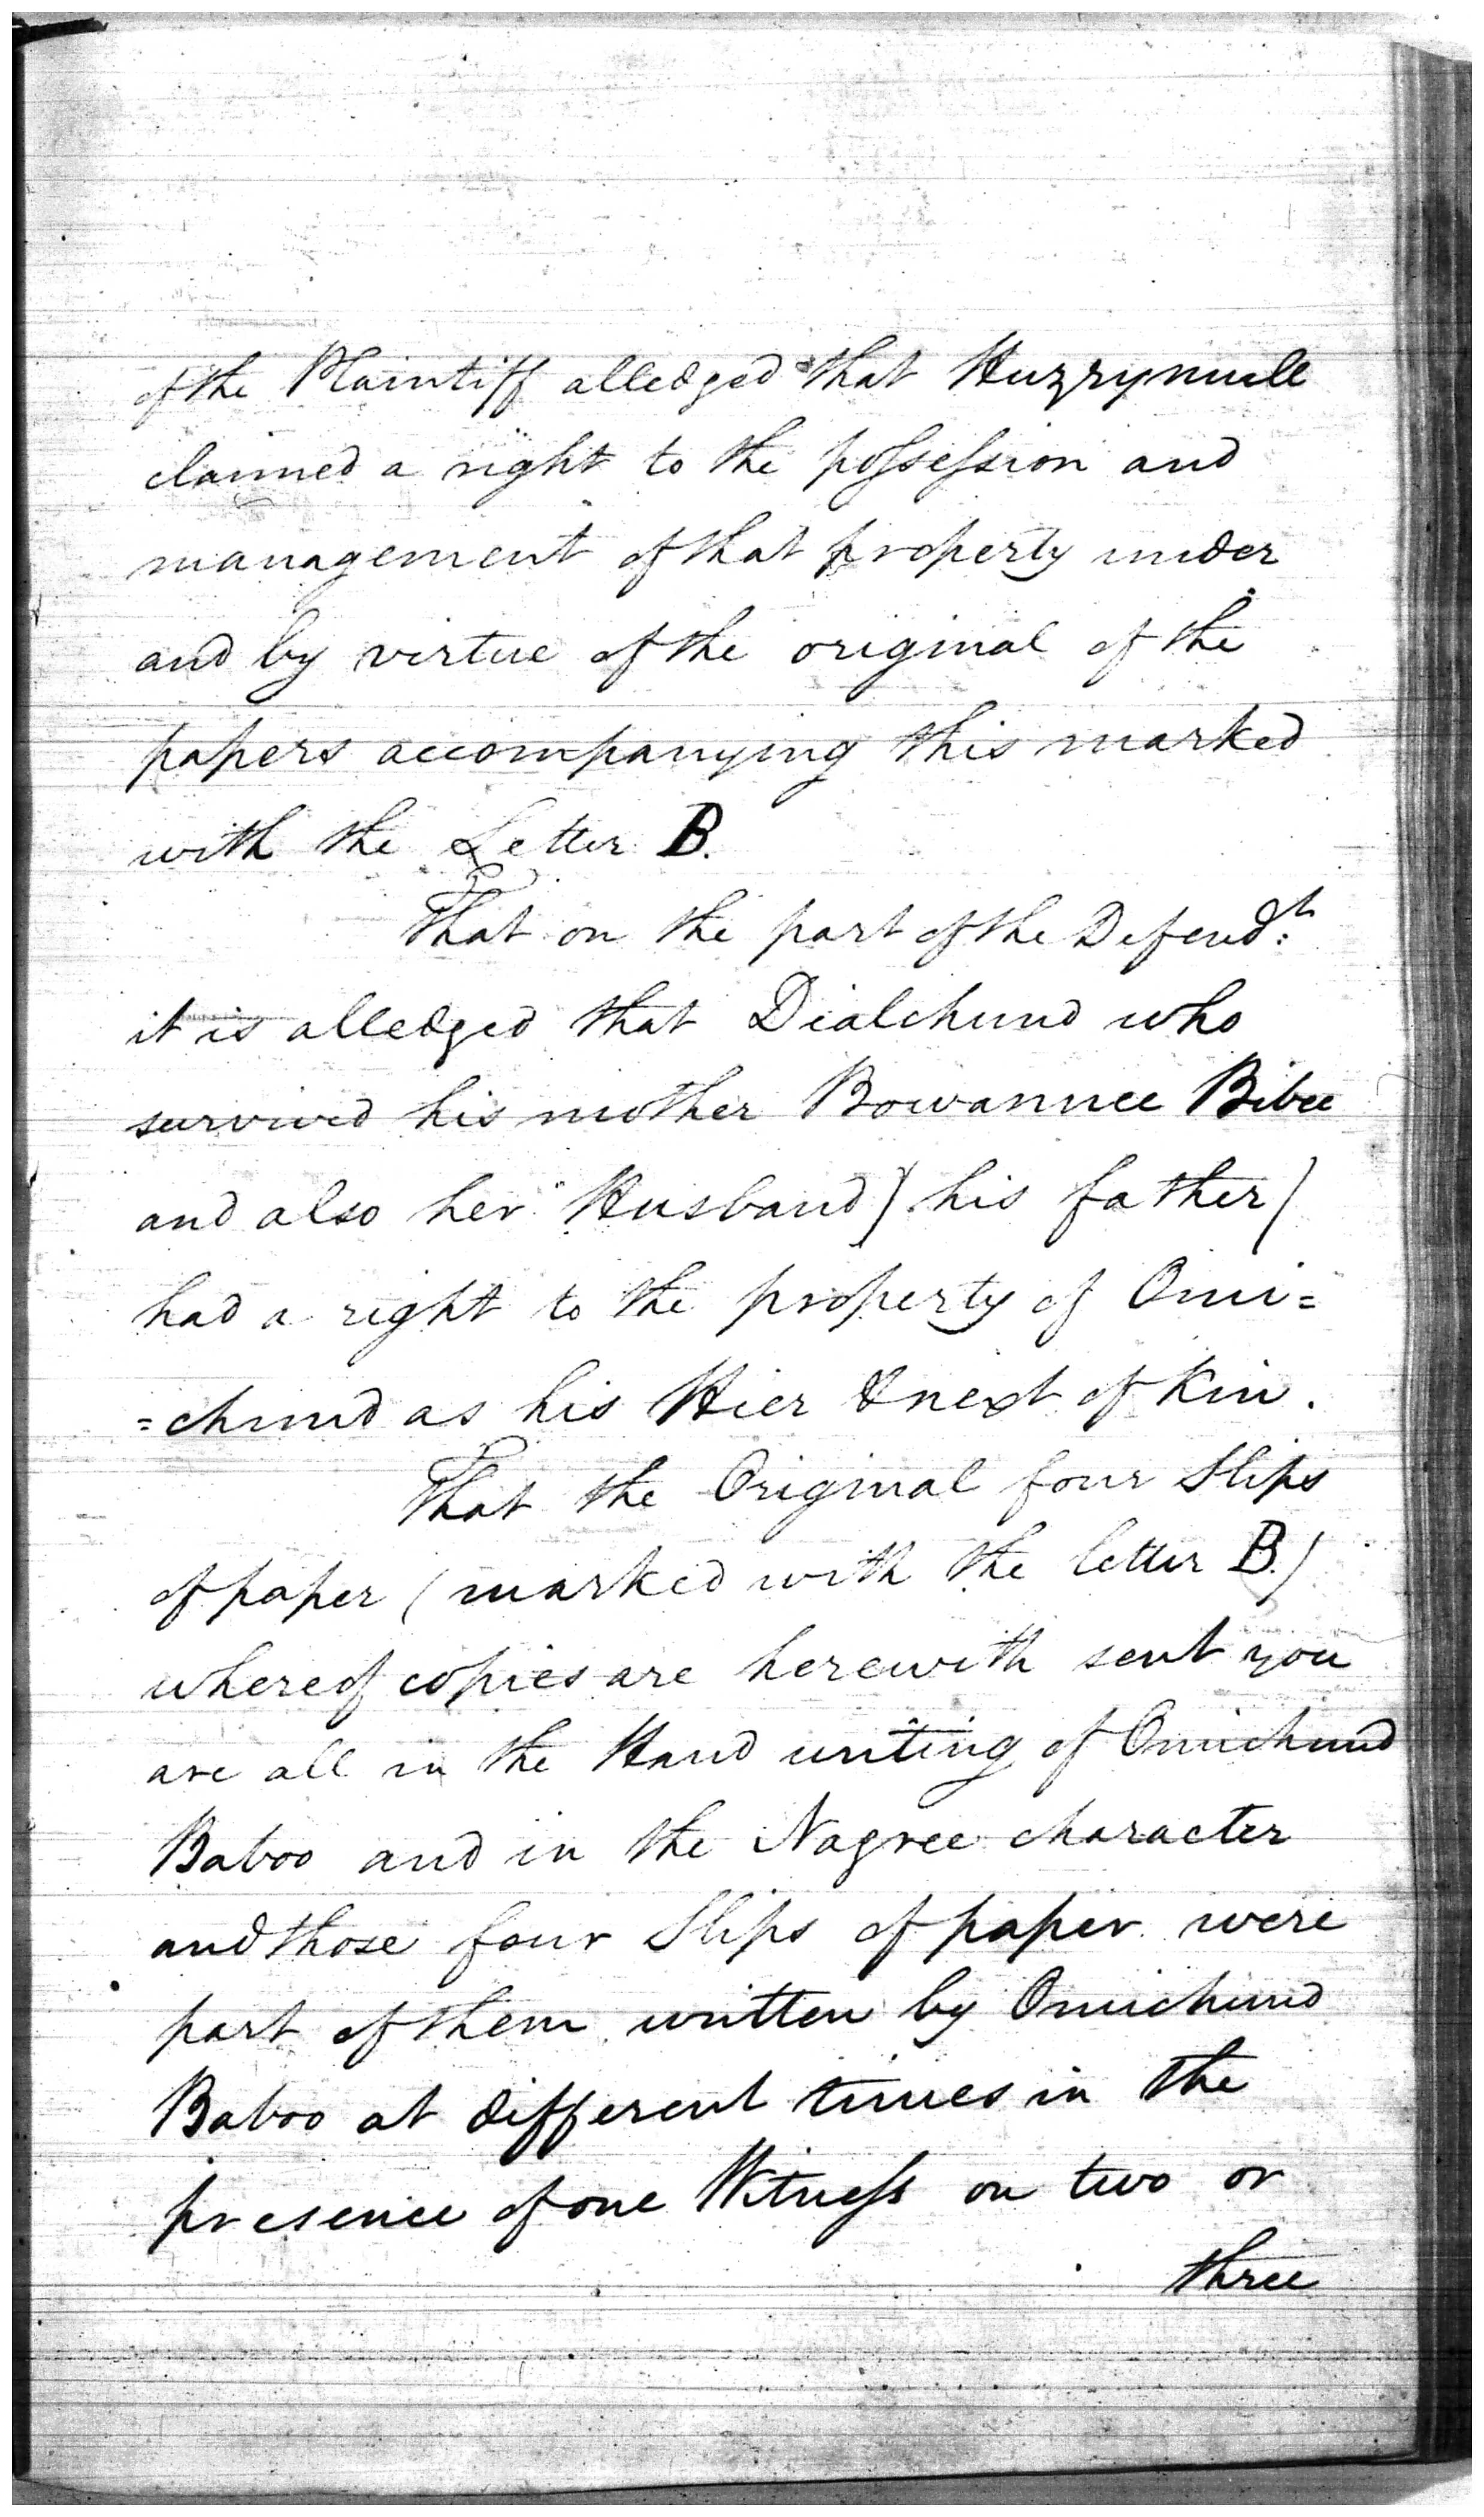 of the Plaintiff alledged that Huzzrymull
claimed a right to the possession and
management of that property under
and by virtue of the original of the
papers accompanying this marked
with the Letter B.
That on the part of the Defendt:
it is alledged that Dialchund who
survived his mother Bowannee Bibee
and also her Husband) his father)
had a right to the property of Omi=
=chund as his Hier & next of Kin.
That the Original four Slips
of paper (marked with the letter B.)
whereof copies are herewith sent you
are all in the Hand writing of Omichund
Baboo and in the Nagree character
and those four Slips of paper were
part of them written by Omichund
Baboo at different times in the
presence of one Witness on two or
three